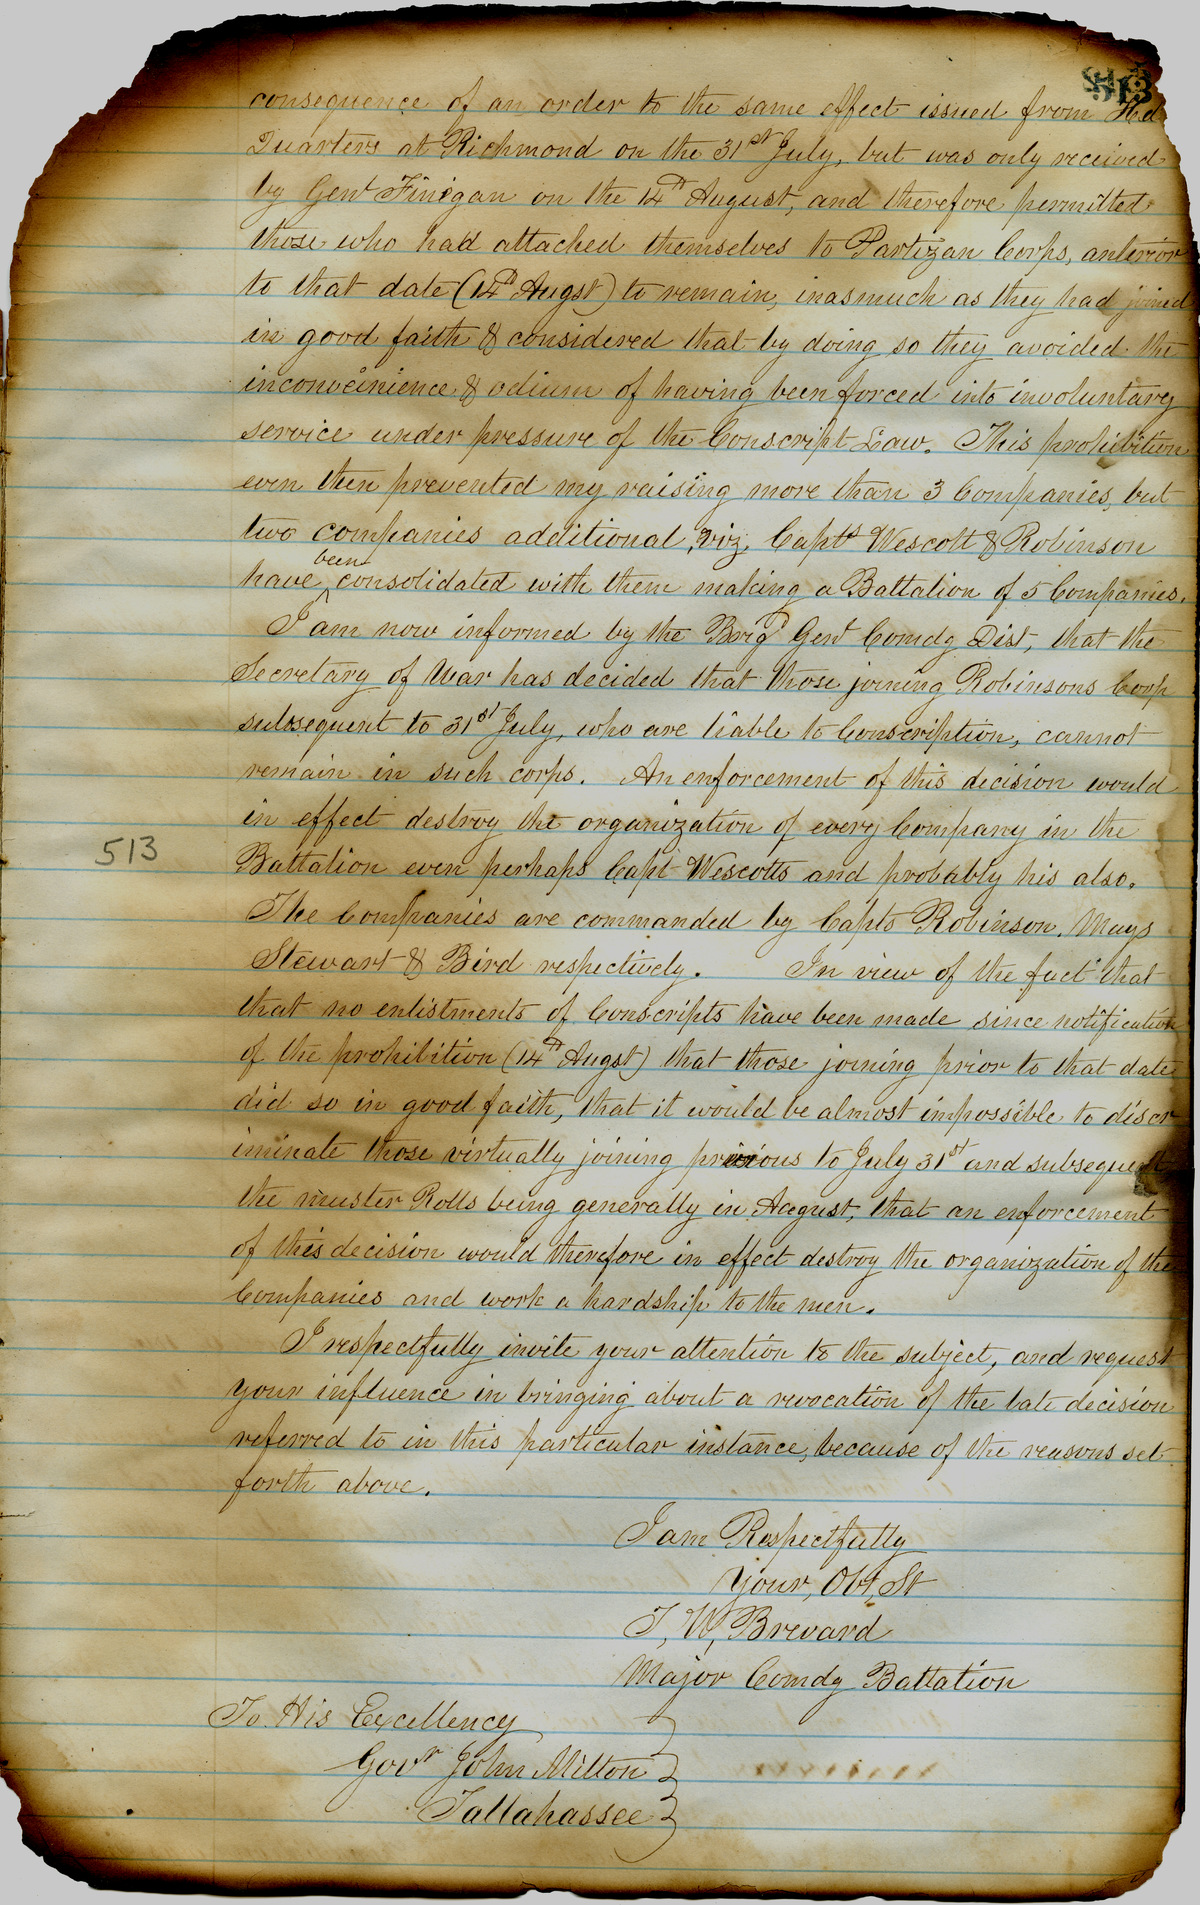 513
consequence of an order to the same effect issued from Hd
Quarters at Richmond on the 31st July, but was only received
by Genl Finegan on the 14th August, and therefore permitted
those who had attached themselves to Partizan Corps, anterior
to that date (14th Augst) to remain, inasmuch as they had joined
in good faith & considered that by doing so they avoided the
inconveinience & odium of having been forced into involuntary
service under pressure of the Conscript Law. This prohibition
even then prevented my raising more than 3 Companies, but
two companies additional, viz, Capts Wescott & Robinson
have been consolidated with them making a Battalion of 5 Companies.
I am now informed by the Brigd Genl Comdg Dist, that the
Secretary of War has decided that those joining Robinsons Corp
subsequent to 31st July, who are liable to Conscription, cannot
remain in such corps. An enforcement of this decision would
in effect destroy the organization of every Company in the
513
Battalion even perhaps Capt Wescotts and probably his also.
The Companies are commanded by Capts Robinson, Mays
Stewart & Bird respectively. In view of the fact that
that no enlistments of Conscripts have been made since notification
of the prohibition (14th Augst) that those joining prior to that date
did so in good faith, that it would be almost impossible to discr
iminate those virtually joining previous to July 31st and subsequent
the muster Rolls being generally in August, that an enforcement
of this decision would therefore in effect destroy the organization of the
Companies and work a hardship to the men.
I respectfully invite your attention to the subject, and request
your influence in bringing about a revocation of the late decision
referred to in this particular instance, because of the reasons set
forth above.
I am Respectfully
Your, Obt, St
T, W, Brevard
Major Comdg Battalion
To His Excellency
Govr John Milton
Tallahassee